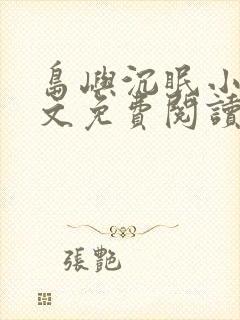 島嶼沉眠小
文免費閱讀
張艷